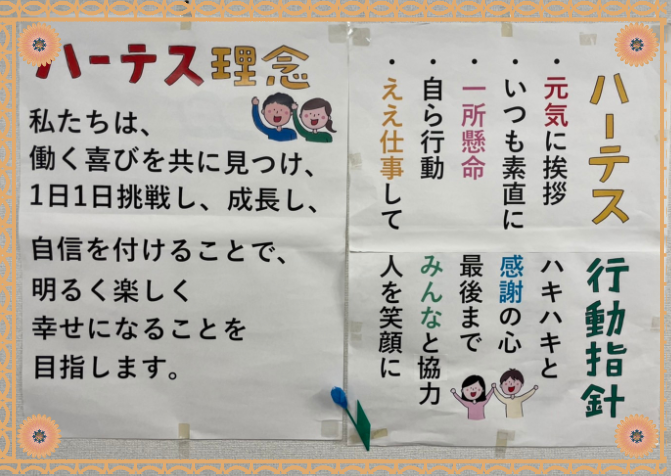 ハーテス理念
私たちは、
働く喜びを共に見つけ、
1日1日挑戦し、成長し、
自信を付けることで、
明るく楽しく
幸せになることを
目指します。
ハーテス 行動指針
・元気に挨拶 ハキハキと
・いつも素直に 感謝の心
・一所懸命 最後まで
・自ら行動 みんなと協力
・ええ仕事して 人を笑顔に